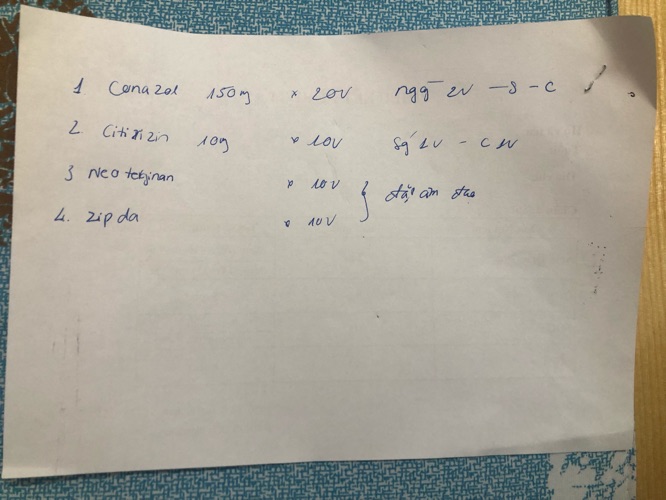 1 Conazol 150mg x 20V ngày 2V - S - C
2 Citirizin 10mg x 10V Sg 1V - C 1V
3 Neo tergynan x 10V } đặt âm đạo
4. Zip da x 10V